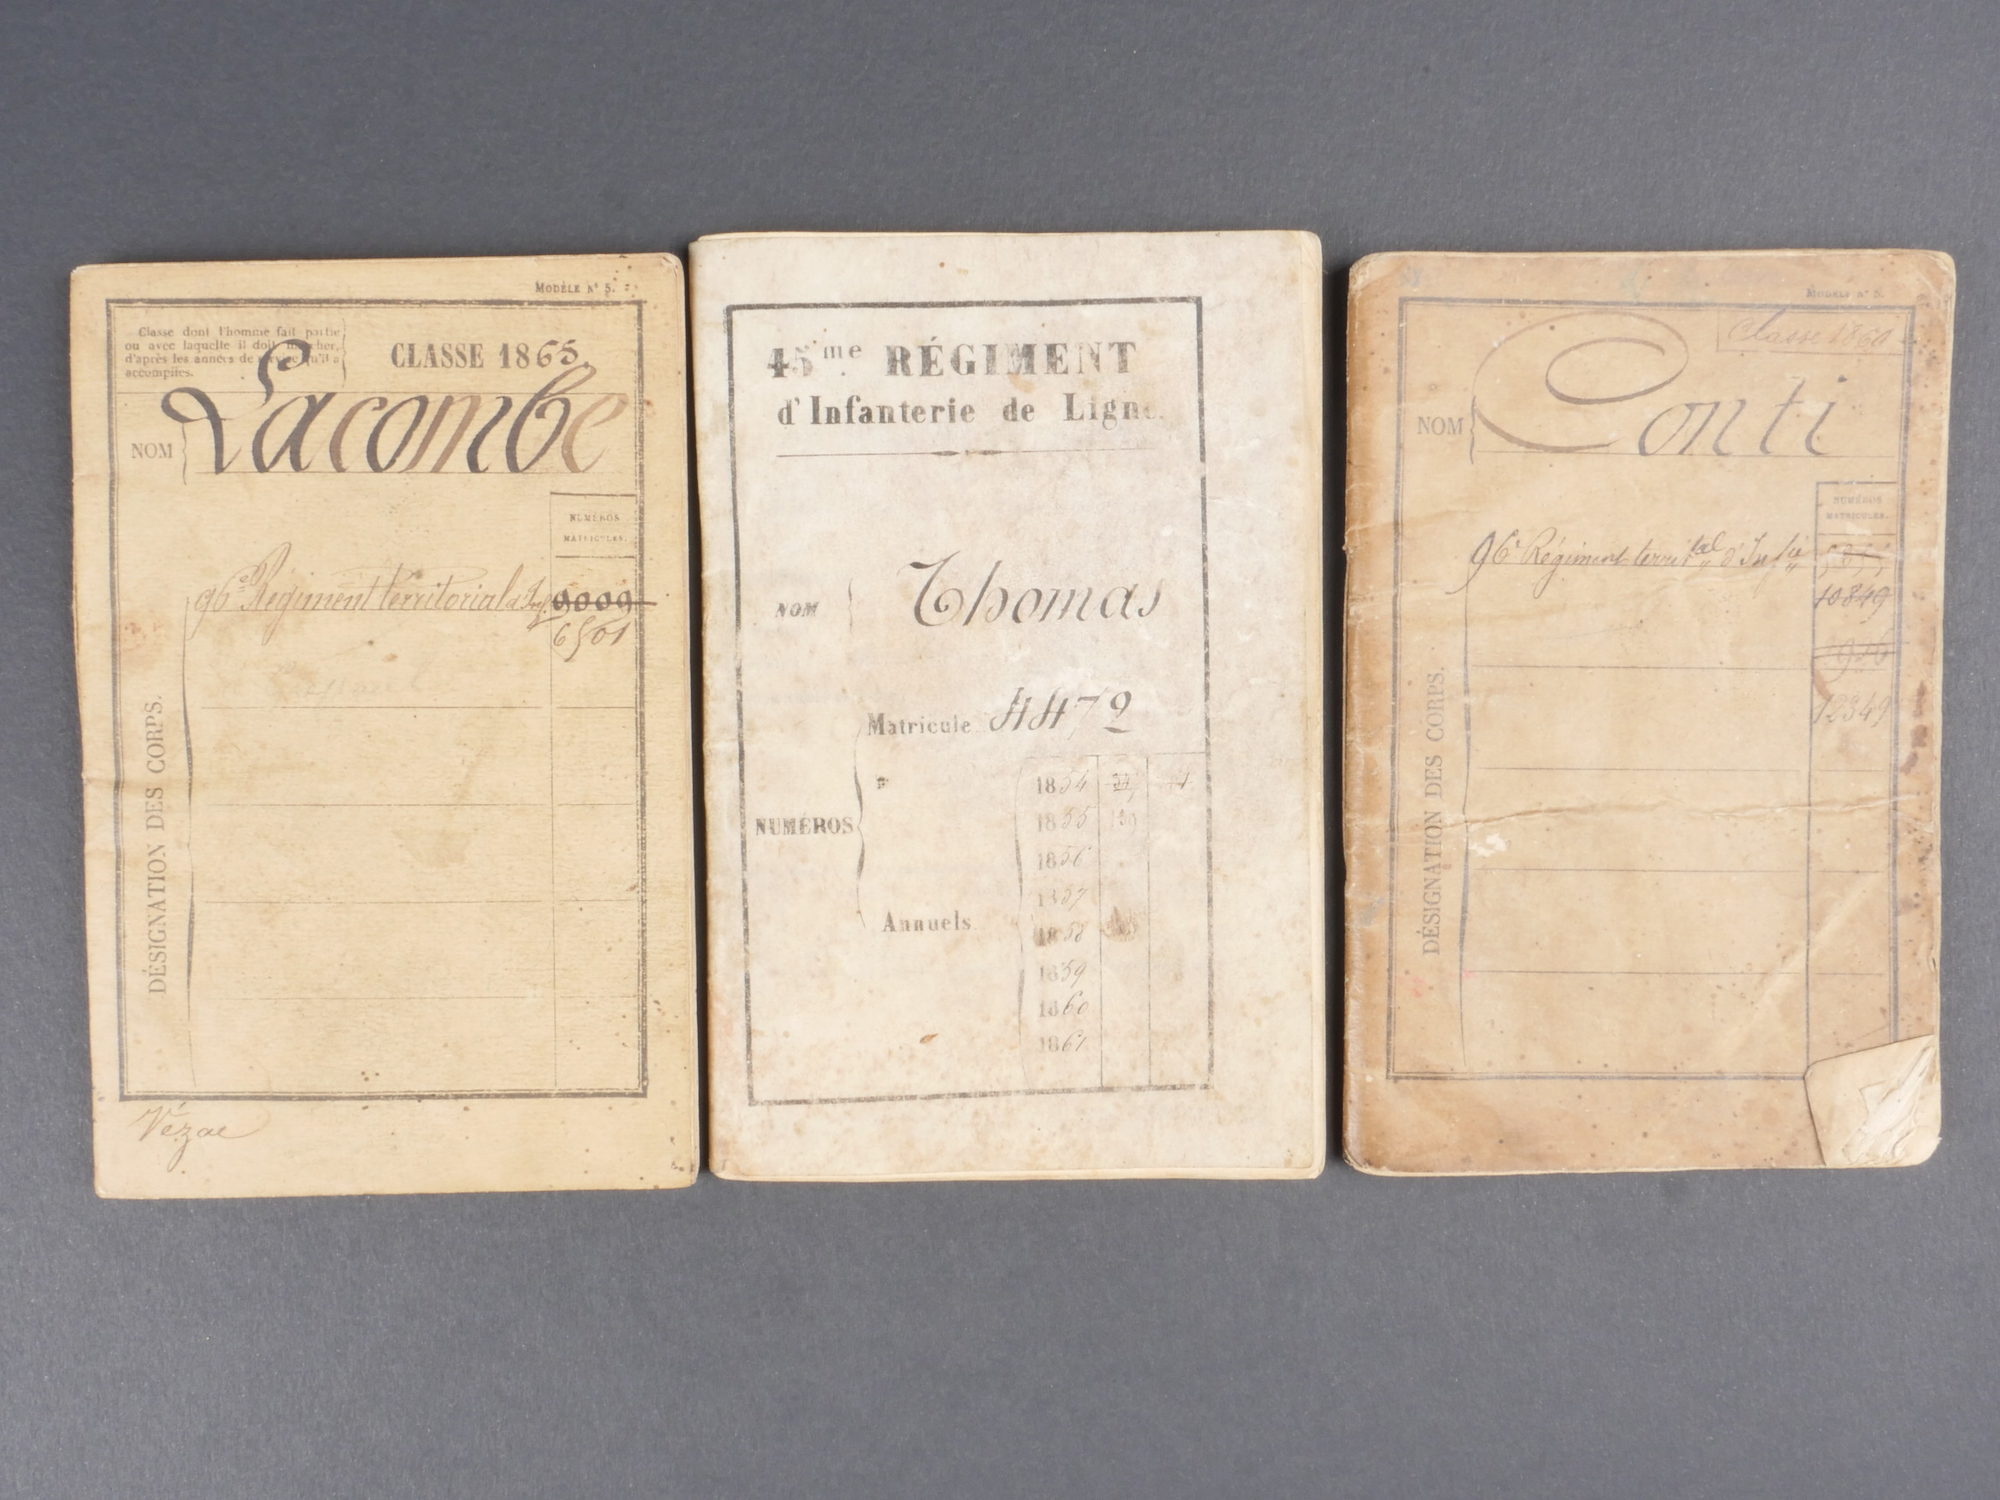 MODÈLE N° 5.
Classe dont l'homme fait partie
ou avec laquelle il doit marcher,
d'après les années de service qu'il a
accomplies.
CLASSE 1865
NOM Lacombe
NUMÉROS
MATRICULES.
96e Régiment territorial d'Inf. 9009
6501
DÉSIGNATION DES CORPS.
Vézac
45me RÉGIMENT
d'Infanterie de Ligne.
NOM Thomas
Matricule 4472
NUMÉROS
Annuels
1854
1855
1856
1857
1858
1859
1860
1861
MODÈLE N° 5.
Classe 1860
NOM Conti
NUMÉROS
MATRICULES.
96e Régiment territal d'Inf ie
10849
12349
DÉSIGNATION DES CORPS.